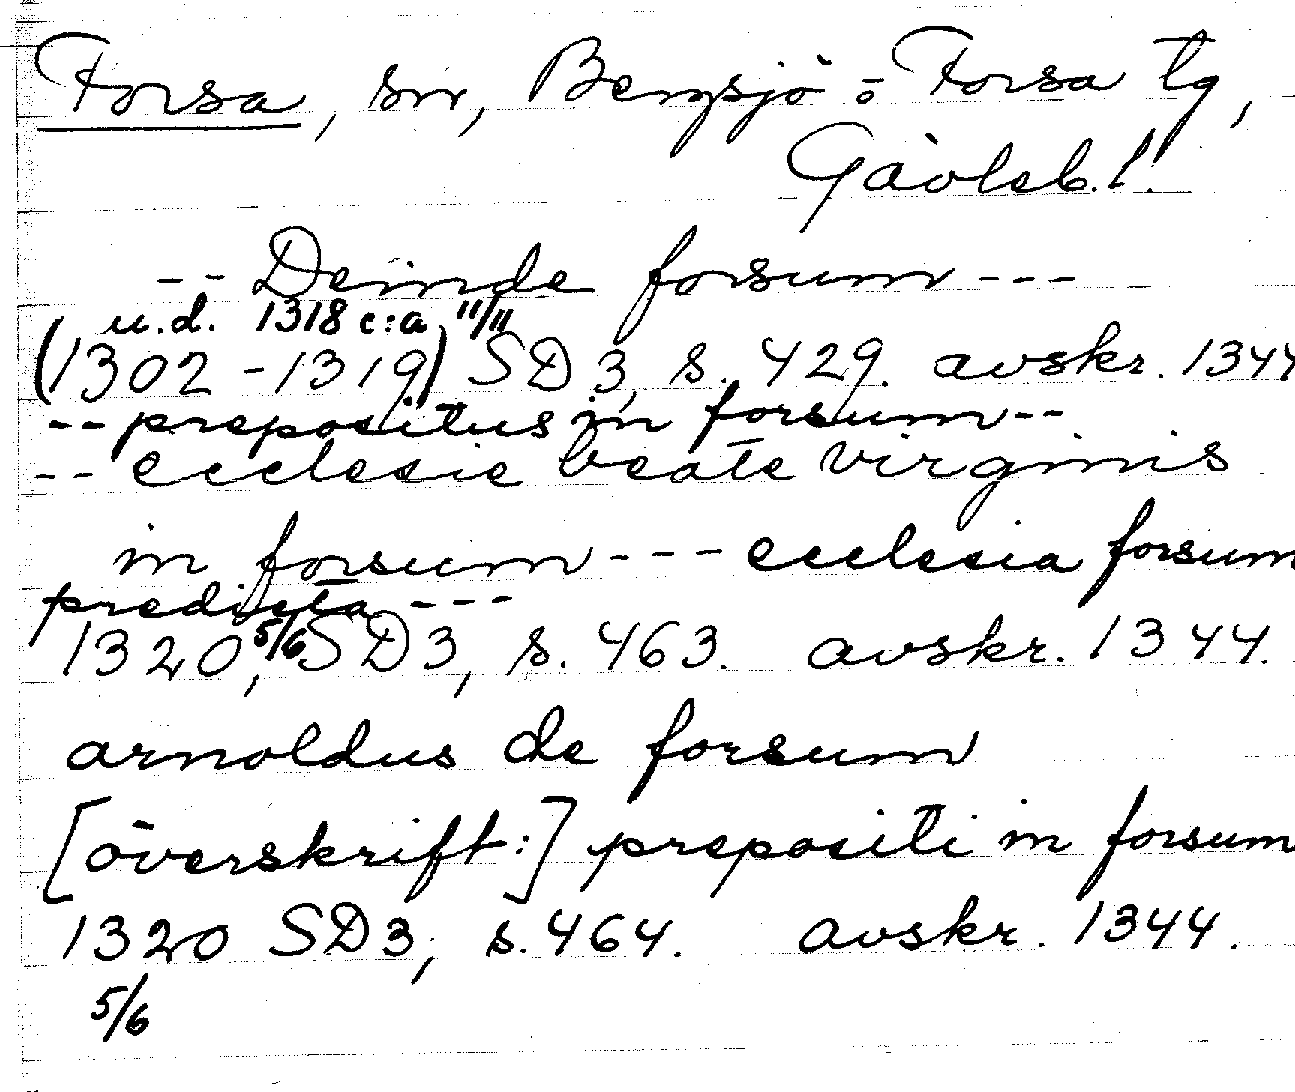 Forsa, sn, Bergsjö o Forsa tg,
Gävleb. l.
-- Deinde forsum ---
u.d. 1318 c:a 11/11
(1302-1319) SD 3, s. 429. avskr. 1344
-- prepositus in forsum --
-- ecclesie beate virginis
in forsum --- ecclesia forsum
predicta ---
1320, 5/6 SD 3, s. 463. avskr. 1344.
arnoldus de forsum
[överskrift:] prepositi in forsum
1320 SD 3, s. 464. avskr. 1344.
5/6